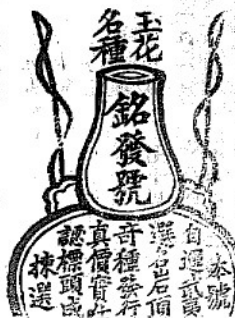 玉花
名種
銘發號
本號
自運武夷
選名岩頂
奇種發行
真價實
認標頭
揀選